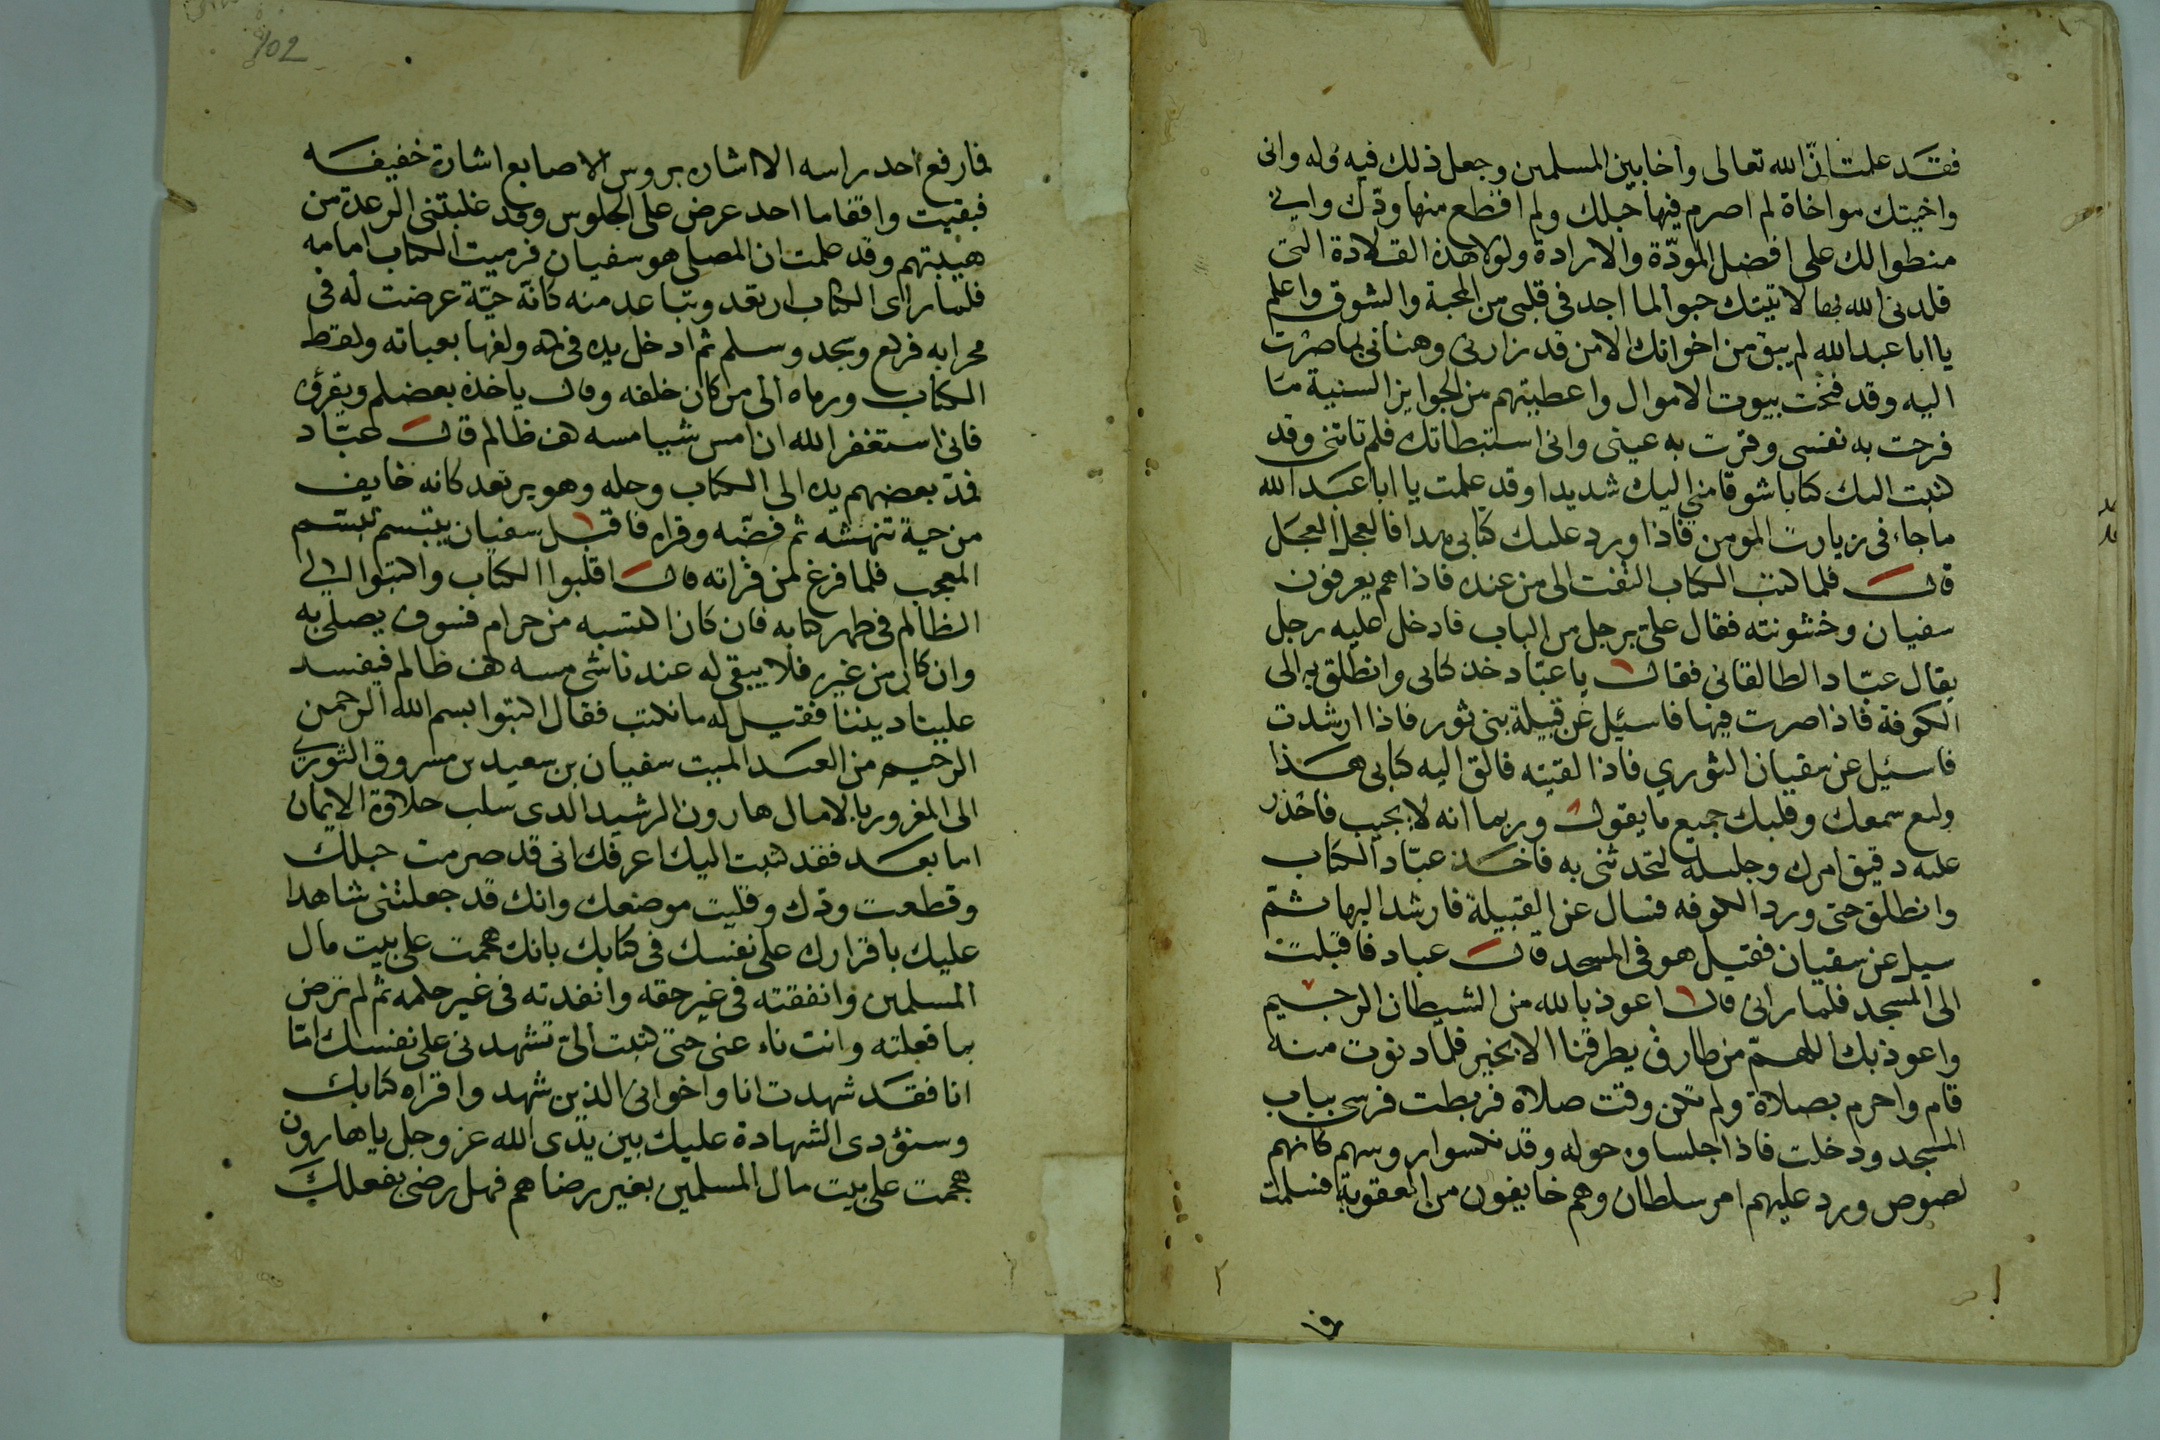 فقد علمت ان الله تعالى وأخا بين المسلمين وجعل ذلك فيه وله وانى
واخيتك مواخاة لم اصرم فيها حبلك ولم اقطع منها ودك وانى
منطوا لك على افضل المودّة والارادة ولولا هذه القلادة التى
قلدنى الله بها لاتيتك حبوا لما اجد فى قلبى من المحبة والشوق واعلم
يا ابا عبد الله لم يبق من اخوانك الا من قد زارنى وهنانى بما صرت
اليه وقد فتحت بيوت الاموال واعطيتهم من الجوايز السنية ما
فرحت به نفسى وقرت به عينى وانى استبطاتك فلم تاتنى وقد
كتبت اليك كتابا شوقا منى اليك شديدا وقد علمت يا ابا عبد الله
ما جاء فى زيارت المومن فاذا ورد عليك كتابى هدا فالعجل العجل
قال فلما كتب الكتاب التفت الى من عنده فاذا هم يعرفون
سفيان وخشونته فقال علىّ برجل من الباب فادخل عليه رجل
يقال عبّاد الطالقانى فقال يا عبّاد خذ كتابى وانطلق به الى
الكوفة فاذا صرت فيها فاسئيل عن قبيلة بنى ثور فاذا ارشدت
فاسئيل عن سفيان الثوري فاذا لقيته فالق اليه كتابى هذا
ولمع سمعك وقلبك جميع ما يقول وربما انه لا يجيب فاخذر
عليه دقيق امرك وجليله لتحدثنى به فاخذ عبّاد الكتاب
وانطلق حتى ورد الكوفه فسال عن القبيلة فارشد اليها ثمّ
سيل عن سفيان فقيل هو فى المسجد قال عباد فاقبلت
الى المسجد فلما رانى قال اعوذ بالله من الشيطان الرجيم
واعوذ بك اللهمّ من طارق يطرقنا الا بخير فلما دنوت منه
قام واحرم بصلاة ولم تكن وقت صلاه فربطت فرسى بباب
المسجد ودخلت فاذا جلساوه حوله وقد نكسوا روسهم كانهم
لصوص ورد عليهم امر سلطان وهم خايفون من العقوبة فسلمت
فما
102
فما رفع احد راسه الا اشاره بروس الاصابع اشارة خفيفه
فبقيت واقفا ما احد عرض على الجلوس وقد غلبتنى الرعدة من
هيبتهم وقد علمت ان المصلى هو سفيان فرميت الكتاب امامه
فلما راى الكتاب ارتعد وتباعد منه كانّه حيّة عرضت له فى
محرابه فركع وسجد وسلم ثم ادخل يده فى كمه ولفها بعباته ولقط
الكتاب ورماه الى من كان خلفه وقال ياخذه بعضكم ويقرؤه
فانى استغفر الله ان امس شيا مسه هن ظالم قال عبّاد
فمدّ بعضهم يده الى الكتاب وحله وهو يرتعد كانه خايف
من حية تنهشه ثم فضّه وقراه فاقبل سفيان يتبسم تبسّم
المعجب فلما فرغ لمن قراته قال اقلبوا الكتاب واكتبوا الى
الظالم فى ظهر كتابه فان كان اكتسبه من حرام فسوف يصلى به
وان كان من غير فلا يبقى له عندنا شى مسه هن ظالم فيفسد
علينا ديننا فقيل له ما نكتب فقال اكتبوا بسم الله الرحمن
الرحيم من العبد الميت سفيان بن سعيد بن مسروق الثورى
الى المغرور بالامال هارون الرشيد الدى سلب حلاوة الايمان
اما بعد فقد كتبت اليك اعرفك انى قد صرمت حبلك
وقطعت ودك وقليت موضعك وانك قد جعلتنى شاهدا
عليك باقرارك على نفسك فى كتابك بانك هجمت على بيت مال
المسلمين وانفقته فى غير حقه وانفدته فى غير حلمه ثم لم ترض
بما فعلته وانت ناء عنى حتى كتبت الىّ تشهدنى على نفسك امّا
انا فقد شهدت انا واخوانى الذين شهد واقراه كتابك
وسنؤدى الشهادة عليك بين يدى الله عز وجل يا هارون
هجمت على بيت مال المسلمين بغير رضاهم فهل رضى بفعلك